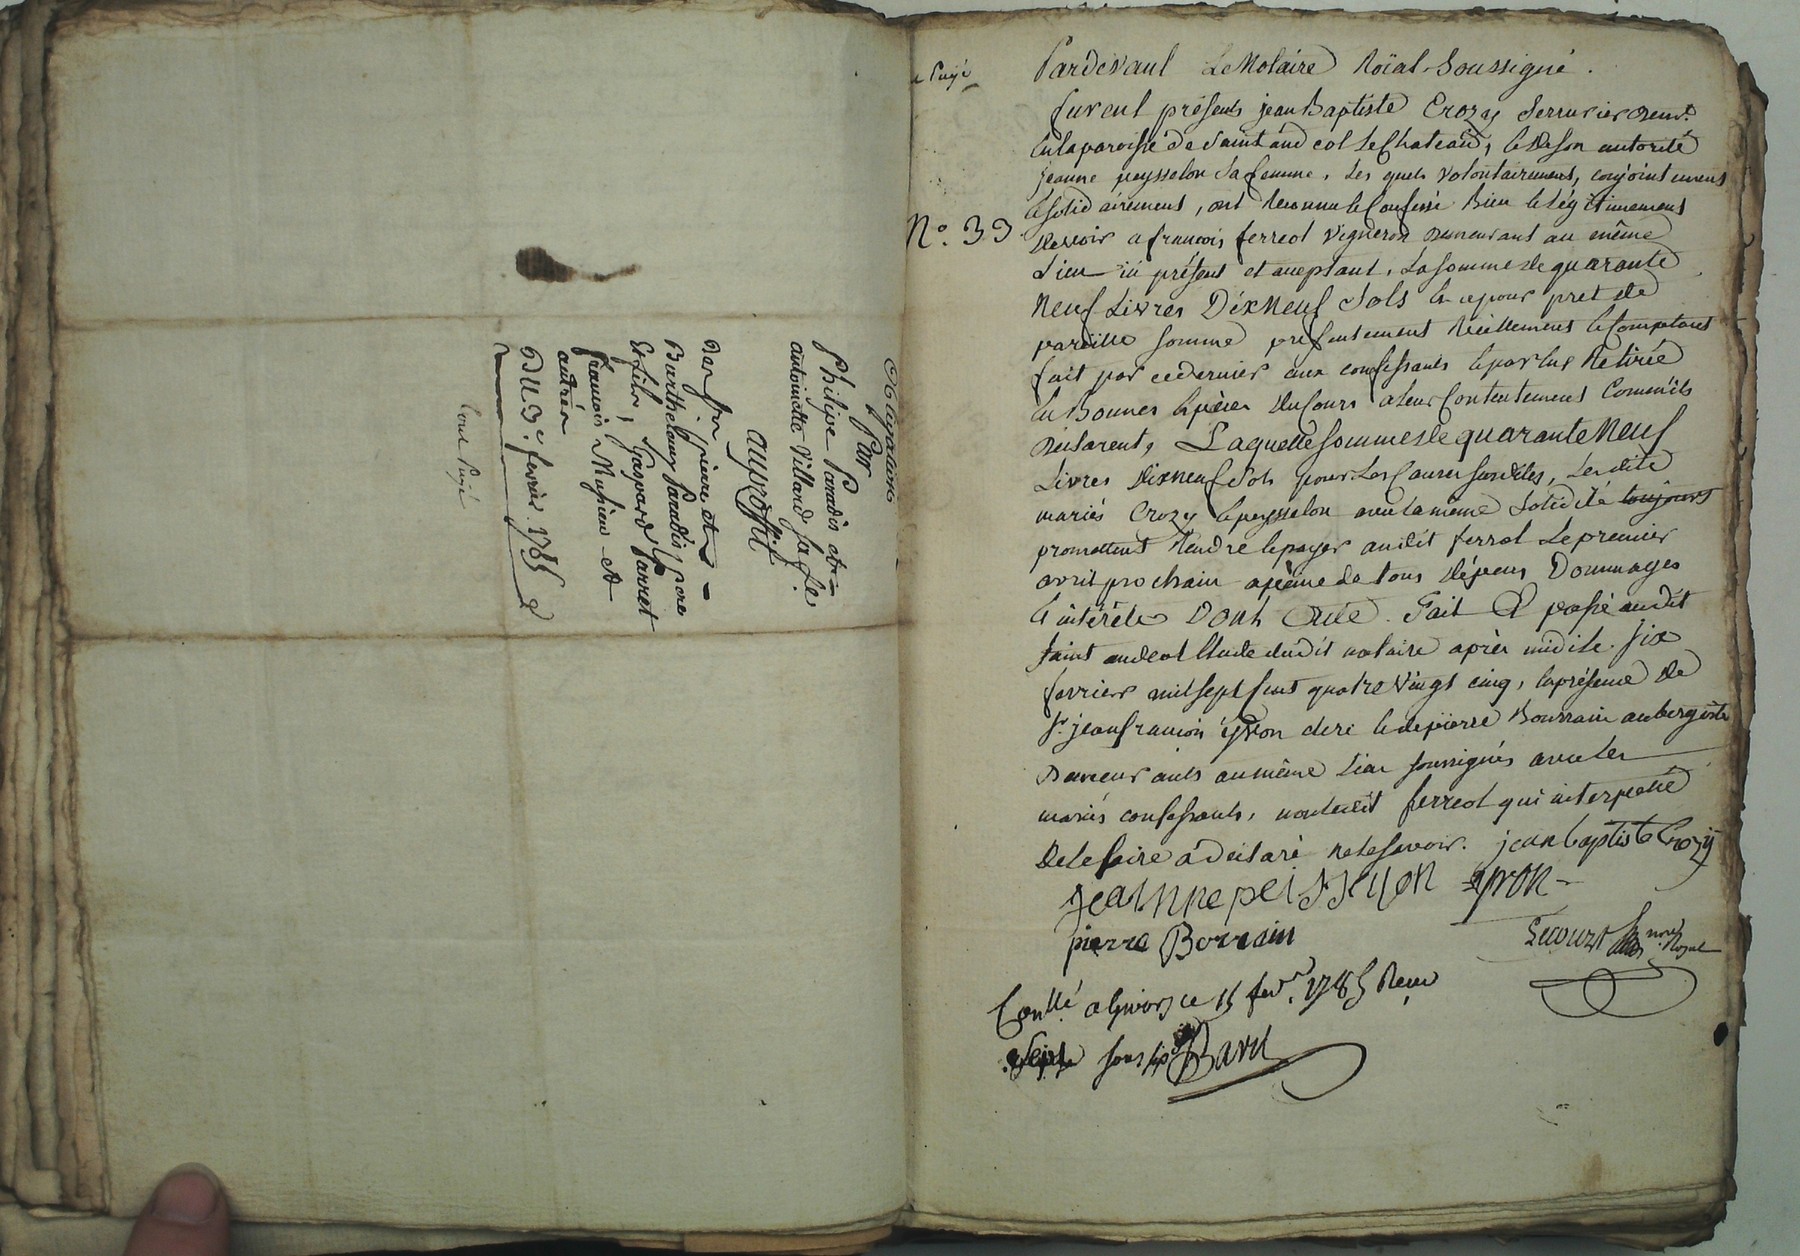 Obligation
Par
Philipe Paradis et
antoinette Villard sa fe.
au proffit
De srs pierre et
Barthelemy Paradis pere
Et fils, Gaspard Parret
francois Musieu et
autres
Du 3e. fevrier 1785
Tout Payé
Payé
Pardevant Le Notaire Roïal Soussigné.
furent présents jean Baptiste Crozy Serrurier demt.
en la paroisse de Saint andeol Le Chateau, & de son autorité
jeanne peysselon sa femme, Les quels volontairement, conjointement
& solidairement, ont Reconnu & Confessé Bien & légitimement
No. 39
devoir a francois ferreol vigneron demeurant au même
Lieu ici présent et acceptant, La somme de quarante
Neuf Livres Dix Neuf Sols & ce pour pret de
pareille somme présentement Réellement & Comptant
fait par ce dernier aux confessants & par Eux Retirée
en Bonnes Espèces du Cours a Leur Contentement Comm'ils
déclarent, Laquelle somme de quarante Neuf
Livres dix neuf Sols pour Les Causes susdites, Lesdits
mariés Crozy & peysselon avec la même Solidité toujours
promettent Rendre & payer audit ferreol Le premier
avril prochain a peine de tous dépens Dommages
& intérêts Dont Acte. Fait Et passé audit
saint andeol Etude dudit notaire après midi le six
fevrier mil sept cent quatre vingt cinq, En présence de
sr. jean francois yvron clerc & de pierre Bourrain aubergiste
Demeurants au même Lieu soussignés avec les
mariés confessants, non ledit ferreol qui interpellé
de le faire a déclaré ne le scavoir. jean baptiste Crozy
jeanne peisselon yvron
pierre Borrain
Lecourt nore. Royal
Conllé a Givors ce 15 fevr. 1785 Reçu
sous six d Baru